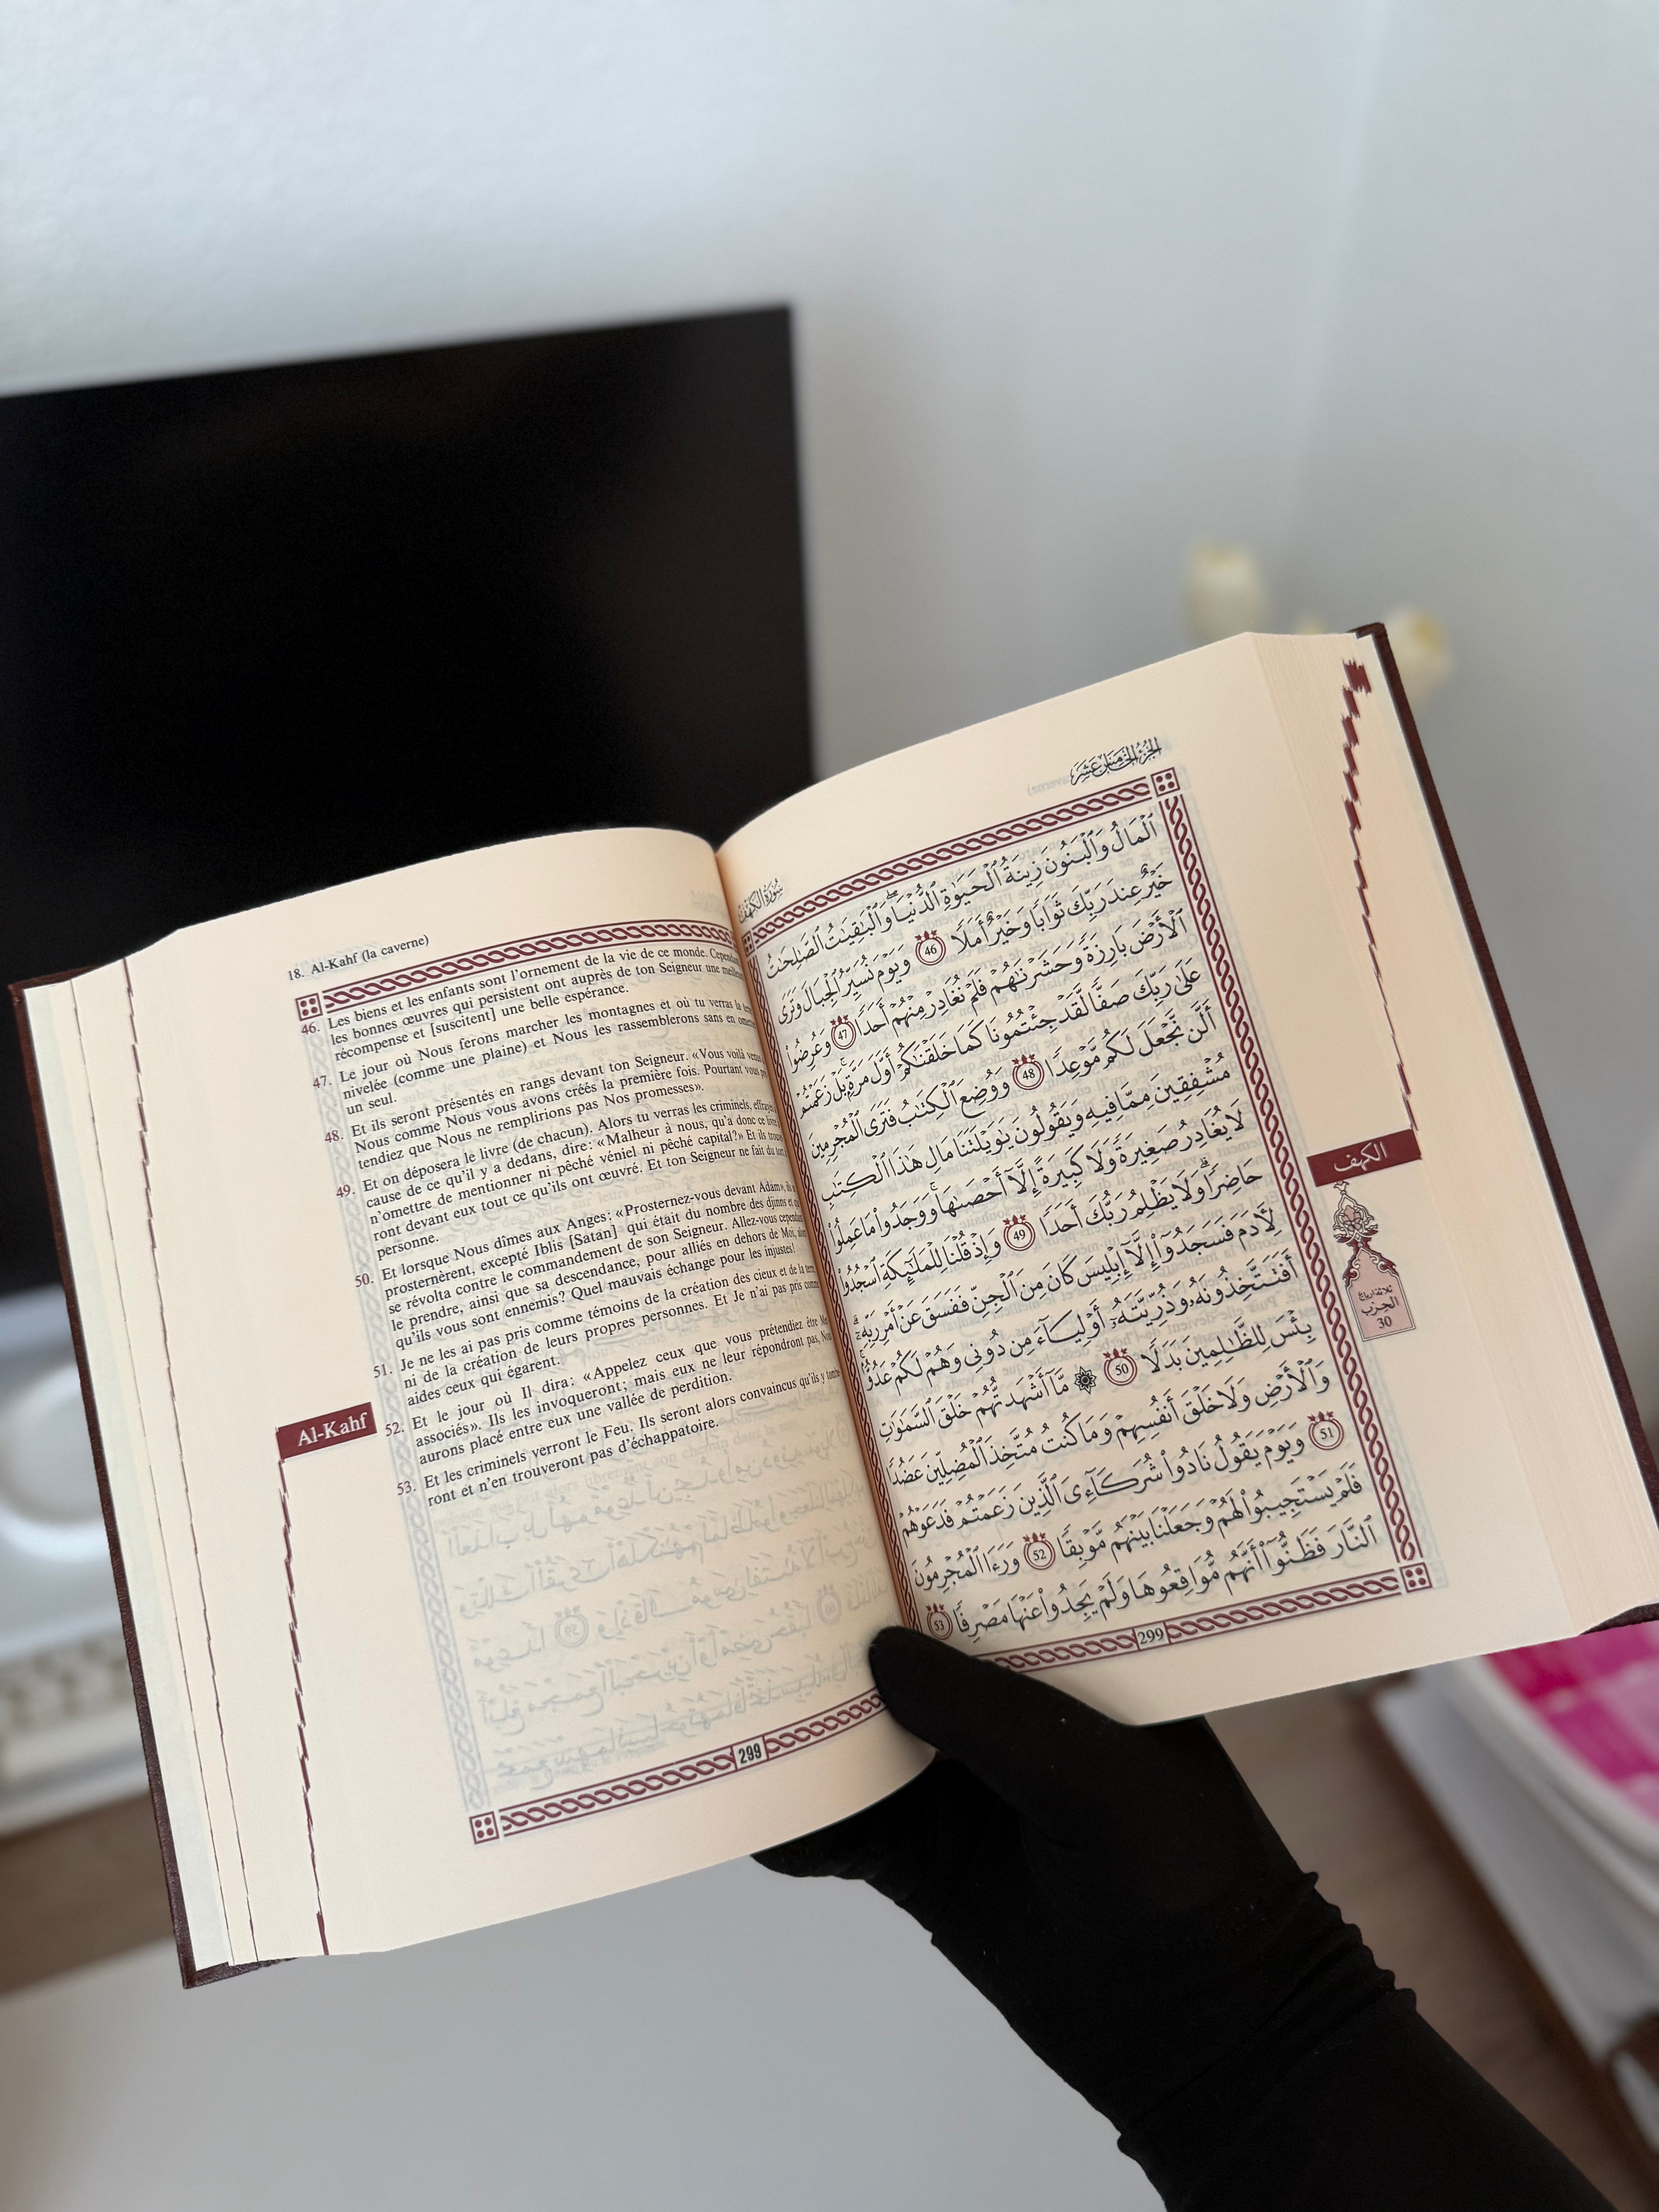 18. Al-Kahf (la caverne)
46. Les biens et les enfants sont l'ornement de la vie de ce monde.
les bonnes œuvres qui persistent ont auprès de ton Seigneur une
récompense et [suscitent] une belle espérance.
47. Le jour où Nous ferons marcher les montagnes et où tu verras la
nivelée (comme une plaine) et Nous les rassemblerons sans en
un seul.
48. Et ils seront présentés en rangs devant ton Seigneur. «Vous voilà
Nous comme Nous vous avons créés la première fois. Pourtant vous
tendiez que Nous ne remplirions pas Nos promesses».
49. Et on déposera le livre (de chacun). Alors tu verras les criminels,
cause de ce qu'il y a dedans, dire: «Malheur à nous, qu'a donc ce
n'omettre de mentionner ni péché véniel ni péché capital?» Et ils
ront devant eux tout ce qu'ils ont œuvré. Et ton Seigneur ne fait du
personne.
50. Et lorsque Nous dîmes aux Anges: «Prosternez-vous devant Adam»,
prosternèrent, excepté Iblis [Satan] qui était du nombre des djinns et
se révolta contre le commandement de son Seigneur. Allez-vous
le prendre, ainsi que sa descendance, pour alliés en dehors de Moi,
qu'ils vous sont ennemis? Quel mauvais échange pour les injustes!
51. Je ne les ai pas pris comme témoins de la création des cieux et de la
ni de la création de leurs propres personnes. Et Je n'ai pas pris
aides ceux qui égarent.
52. Et le jour où Il dira: «Appelez ceux que vous prétendiez être
associés». Ils les invoqueront; mais eux ne leur répondront pas,
aurons placé entre eux une vallée de perdition.
53. Et les criminels verront le Feu. Ils seront alors convaincus qu'ils y
ront et n'en trouveront pas d'échappatoire.
Al-Kahf
299
سُورَةُ الكَهْفِ
الجُزْءُ الخَامِسَ عَشَرَ
ٱلْمَالُ وَٱلْبَنُونَ زِينَةُ ٱلْحَيَوٰةِ ٱلدُّنْيَا ۖ وَٱلْبَٰقِيَٰتُ ٱلصَّٰلِحَٰتُ
خَيْرٌ عِندَ رَبِّكَ ثَوَابًا وَخَيْرٌ أَمَلًا 46 وَيَوْمَ نُسَيِّرُ ٱلْجِبَالَ وَتَرَى
ٱلْأَرْضَ بَارِزَةً وَحَشَرْنَٰهُمْ فَلَمْ نُغَادِرْ مِنْهُمْ أَحَدًا 47 وَعُرِضُوا۟
عَلَىٰ رَبِّكَ صَفًّا لَّقَدْ جِئْتُمُونَا كَمَا خَلَقْنَٰكُمْ أَوَّلَ مَرَّةٍۭ ۚ بَلْ زَعَمْتُمْ
أَلَّن نَّجْعَلَ لَكُم مَّوْعِدًا 48 وَوُضِعَ ٱلْكِتَٰبُ فَتَرَى ٱلْمُجْرِمِينَ
مُشْفِقِينَ مِمَّا فِيهِ وَيَقُولُونَ يَٰوَيْلَتَنَا مَالِ هَٰذَا ٱلْكِتَٰبِ
لَا يُغَادِرُ صَغِيرَةً وَلَا كَبِيرَةً إِلَّآ أَحْصَىٰهَا ۚ وَوَجَدُوا۟ مَا عَمِلُوا۟
حَاضِرًا ۗ وَلَا يَظْلِمُ رَبُّكَ أَحَدًا 49 وَإِذْ قُلْنَا لِلْمَلَٰٓئِكَةِ ٱسْجُدُوا۟
لِءَادَمَ فَسَجَدُوٓا۟ إِلَّآ إِبْلِيسَ كَانَ مِنَ ٱلْجِنِّ فَفَسَقَ عَنْ أَمْرِ رَبِّهِۦٓ ۗ
أَفَتَتَّخِذُونَهُۥ وَذُرِّيَّتَهُۥٓ أَوْلِيَآءَ مِن دُونِى وَهُمْ لَكُمْ عَدُوٌّۢ ۚ
بِئْسَ لِلظَّٰلِمِينَ بَدَلًا 50 ۞ مَّآ أَشْهَدتُّهُمْ خَلْقَ ٱلسَّمَٰوَٰتِ
وَٱلْأَرْضِ وَلَا خَلْقَ أَنفُسِهِمْ وَمَا كُنتُ مُتَّخِذَ ٱلْمُضِلِّينَ عَضُدًا
51 وَيَوْمَ يَقُولُ نَادُوا۟ شُرَكَآءِىَ ٱلَّذِينَ زَعَمْتُمْ فَدَعَوْهُمْ
فَلَمْ يَسْتَجِيبُوا۟ لَهُمْ وَجَعَلْنَا بَيْنَهُم مَّوْبِقًا 52 وَرَءَا ٱلْمُجْرِمُونَ
ٱلنَّارَ فَظَنُّوٓا۟ أَنَّهُم مُّوَاقِعُوهَا وَلَمْ يَجِدُوا۟ عَنْهَا مَصْرِفًا 53
299
الكهف
ثلاثة أرباع
الحزب
30